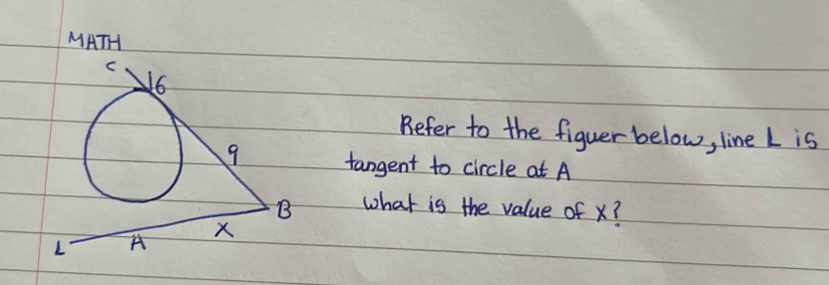 MATH
C
16
9
B
X
A
L
Refer to the figuer below, line L is
tangent to circle at A
what is the value of x?